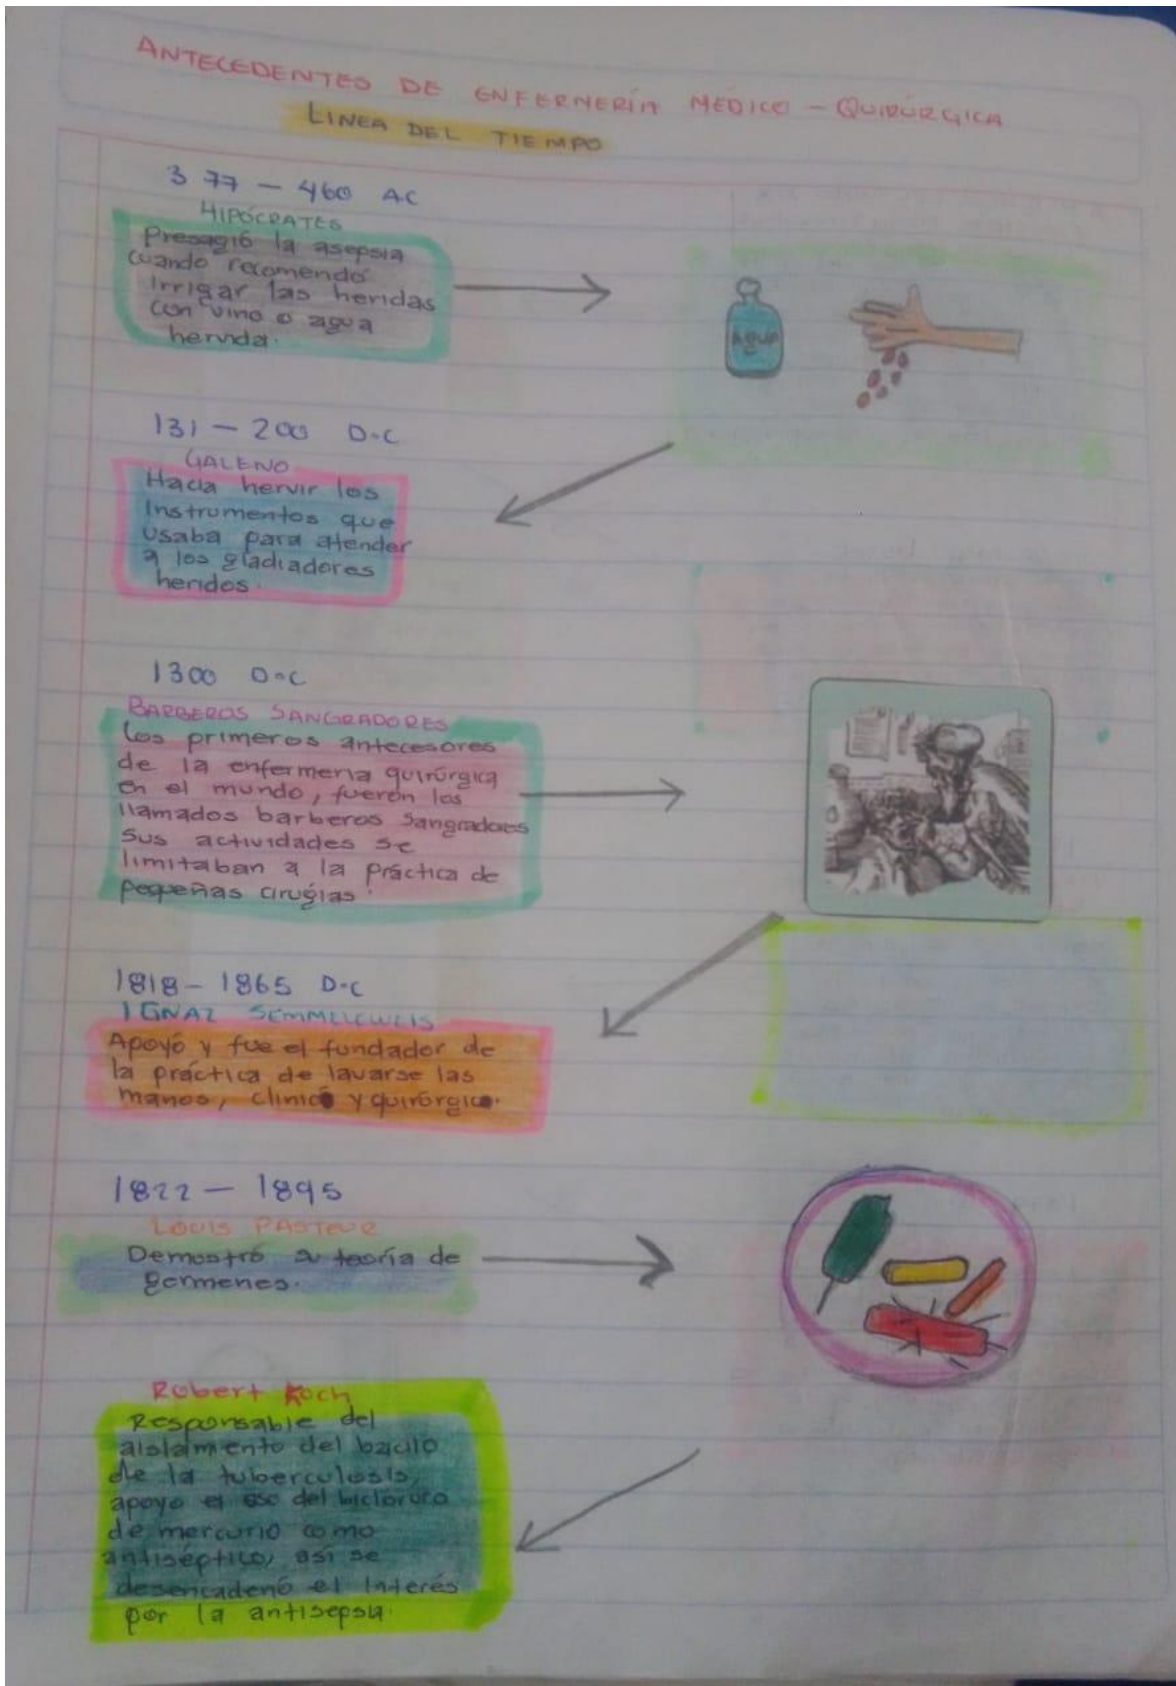 ANTECEDENTES DE ENFERNERÍA MÉDICO - QUIRÚRGICA
LINEA DEL TIEMPO
377 - 460 AC
HIPÓCRATES
Presagió la asepsia
cuando recomendó
irrigar las heridas
con vino o agua
hervida.
AGUA
131 - 200 D.C
GALENO
Hacia hervir los
instrumentos que
usaba para atender
a los gladiadores
heridos.
1300 D.C
BARBEROS SANGRADORES
Los primeros antecesores
de la enfermeria quirúrgica
en el mundo, fueron los
llamados barberos sangradores
sus actividades se
limitaban a la práctica de
pequeñas cirugías.
1818 - 1865 D.C
IGNAZ SEMMELEWEIS
Apoyó y fue el fundador de
la práctica de lavarse las
manos, clinico y quirúrgico.
1822 - 1895
LOUIS PASTEUR
Demostró teoría de
germenes.
Robert Koch
Responsable del
aislamiento del bacilo
de la tuberculosis,
apoyo el uso del bicloruro
de mercurio como
antiséptico, así se
desencadenó el interés
por la antisepsia.